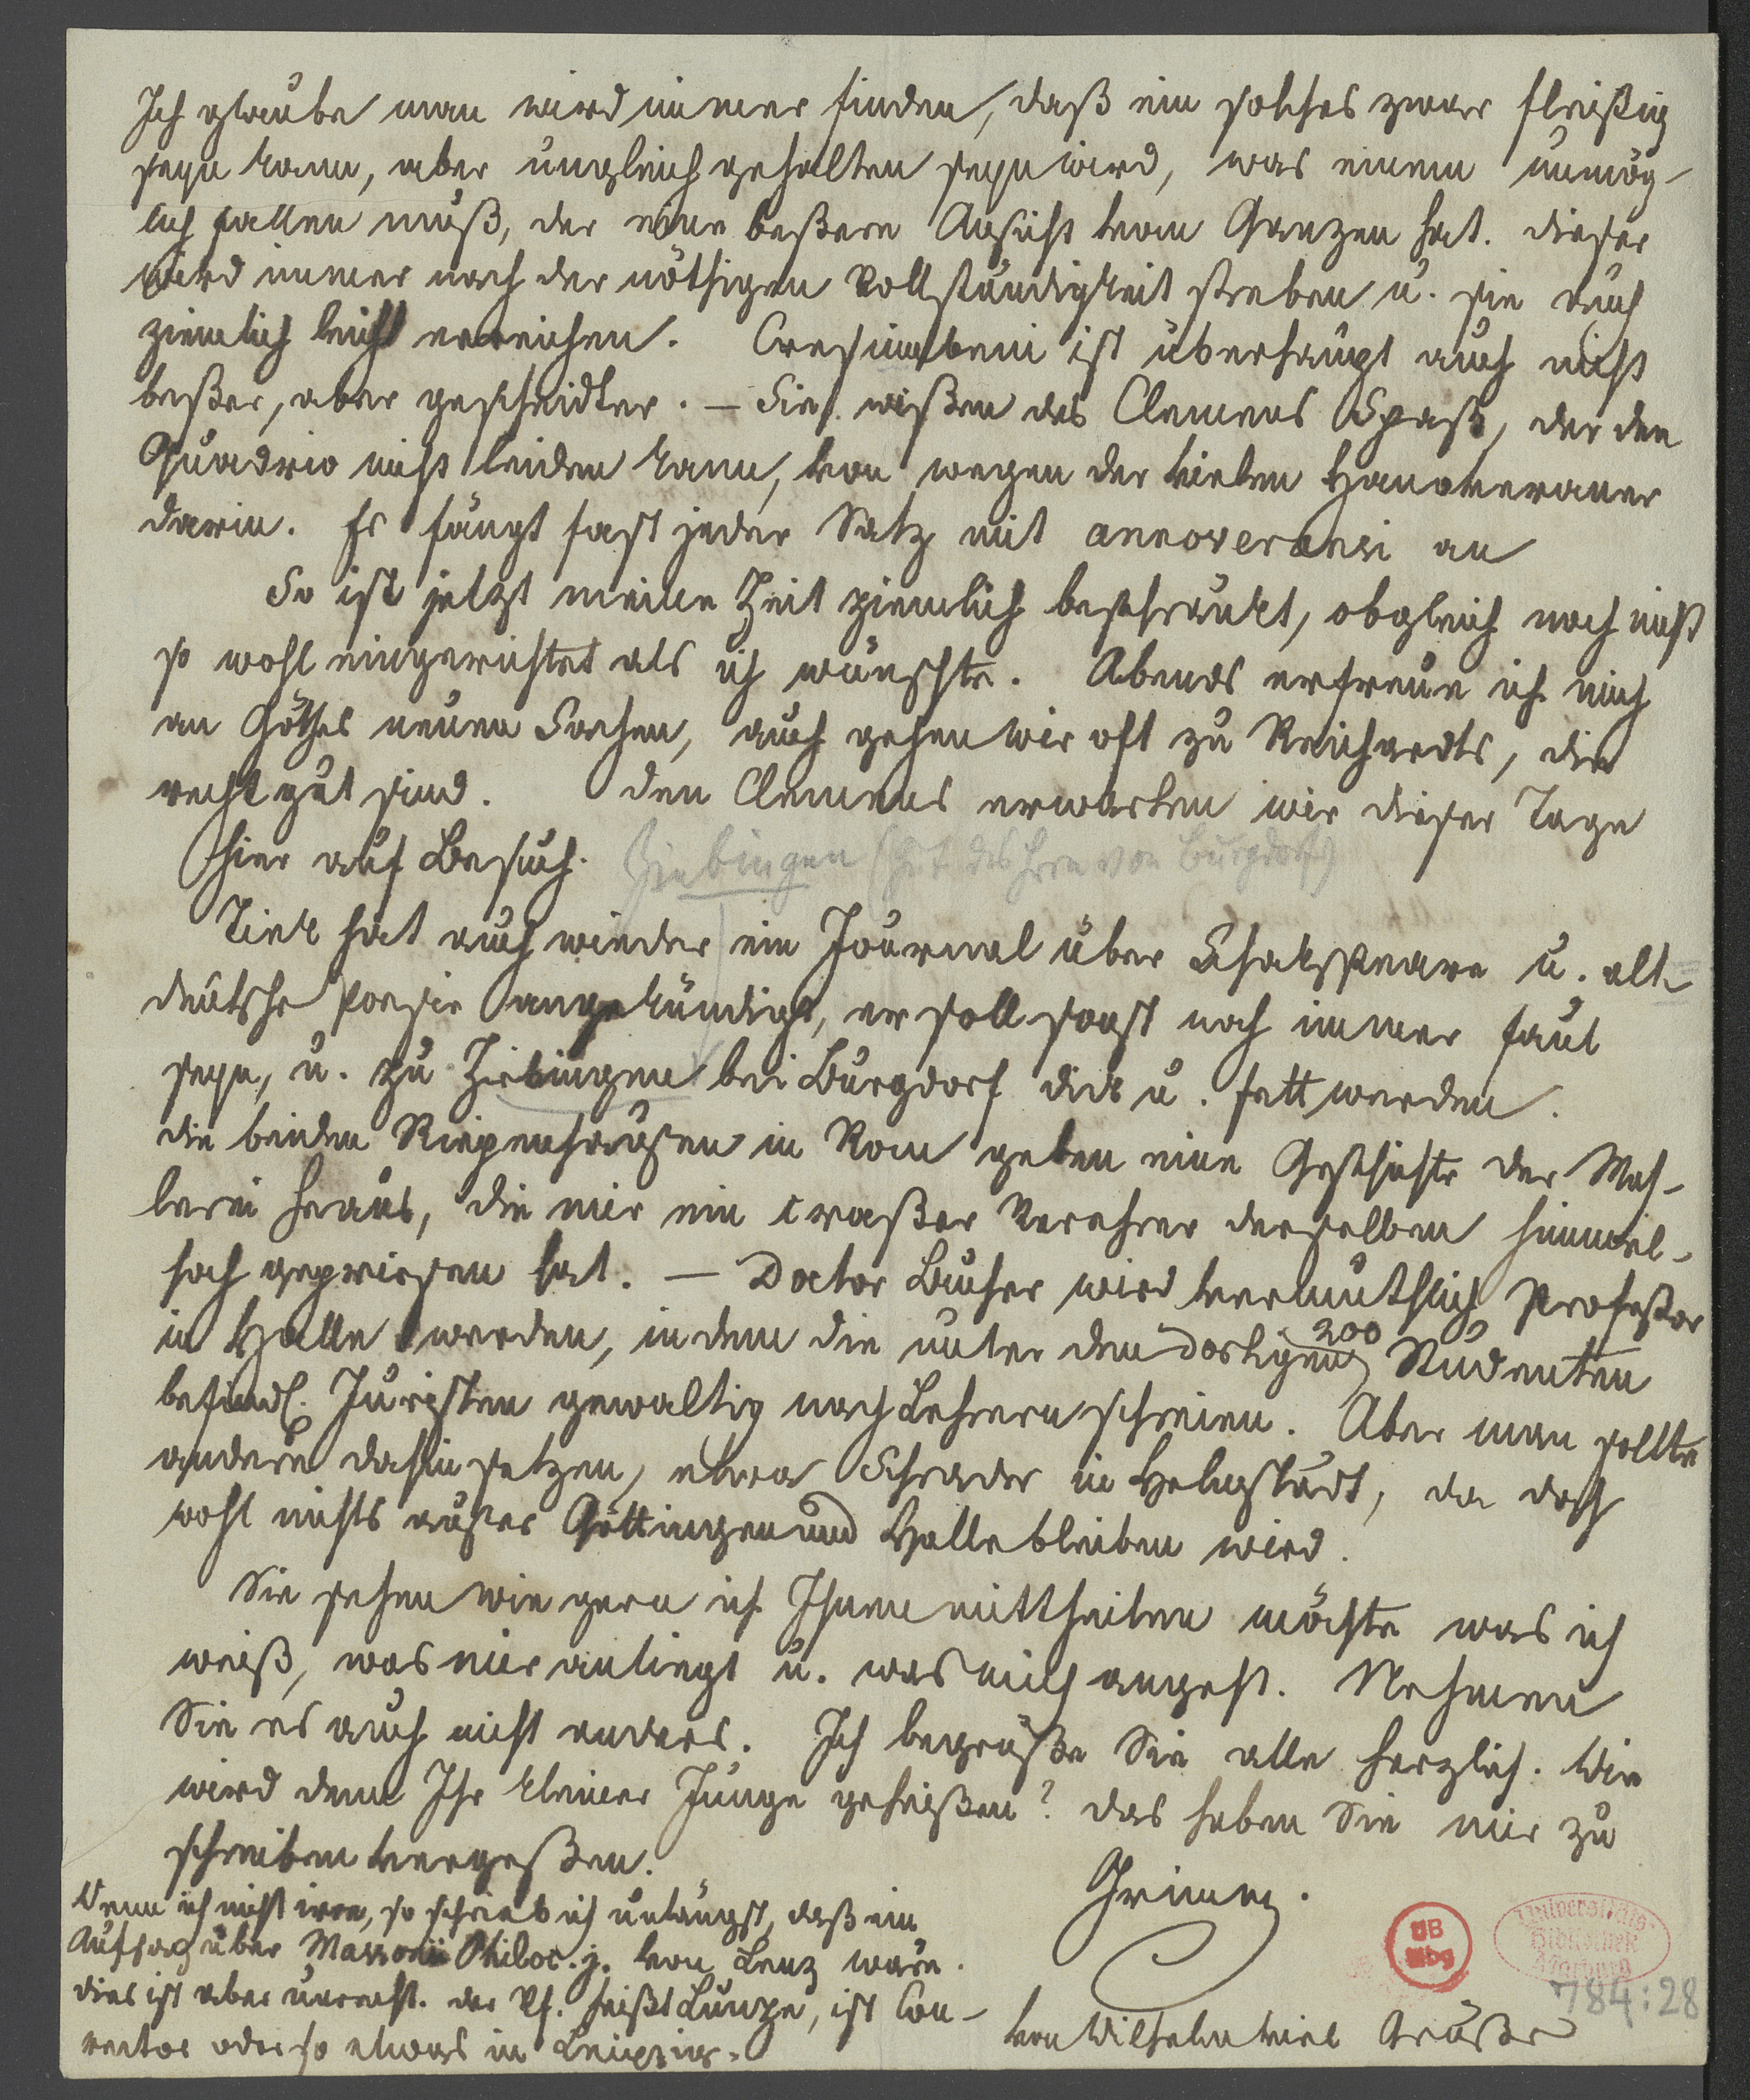 Ich glaube man wird immer finden, daß ein solches zwar fleißig
seyn kann, aber ungleich gehalten seyn wird, was einem unmög-
lich fallen muß, der eine beßere Ansicht vom Ganzen hat. dieser
wird immer nach der nöthigen Vollständigkeit streben u. sie auch
ziemlich leicht erreichen. Crescimbeni ist überhaupt auch nicht
beßer, aber gescheidter. – Sie wißen des Clemens Spaß, der den
Quadrio nicht leiden kann, von wegen der vielen Hanoveraner
darin. Es fängt fast jeder Satz mit annoveransi an
So ist jetzt meine Zeit ziemlich beschränkt, obgleich noch nicht
so wohl eingerichtet als ich wünschte. Abends erfreue ich mich
an Göthes neuen Sachen, auch gehen wir oft zu Reichardts, die
recht gut sind. den Clemens erwarten wir dieser Tage
hier auf Besuch.
Ziebingen (Gut des Hrn von Burgdorf)
Tiek hat auch wieder ein Journal über Shakspeare u. alt-
deutsche Poesie angekündigt, er soll sonst noch immer faul
seyn, u. zu Ziebingen bei Burgdorf dick u. fett werden.
die beiden Riepenhausen in Rom geben eine Geschichte der Mah-
lerei heraus, die mir ein craßer Verehrer derselben himmel-
hoch gepriesen hat. – Doctor Bucher wird vermuthlich Profeßor
in Halle werden, indem die unter den dortigen 200 Studenten
befindl. Juristen gewaltig nach Lehrern schreien. Aber man sollte
andere dahin setzen, etwa Schrader in Helmstädt, da doch
wohl nichts außer Göttingen und Halle bleiben wird.
Sie sehen wie gern ich Ihnen mittheilen möchte was ich
weiß, was mir anliegt u. was mich angeht. Nehmen
Sie es auch nicht anders. Ich begrüße Sie alle herzlich. Wie
wird denn Ihr kleiner Junge geheißen? das haben Sie mir zu
schreiben vergeßen.
Grimm.
Wenn ich nicht irre, so schrieb ich unlängst, daß ein
Aufsaz über Massonii Philoc. j. von Lenz wäre.
dies ist aber unrecht. der Vf. heißt Lünze, ist Con-
rector oder so etwas in Leipzig.
von Wilhelm viel Grüße
UB
Mbg
Universitäts-
Bibliothek
Marburg
784:28